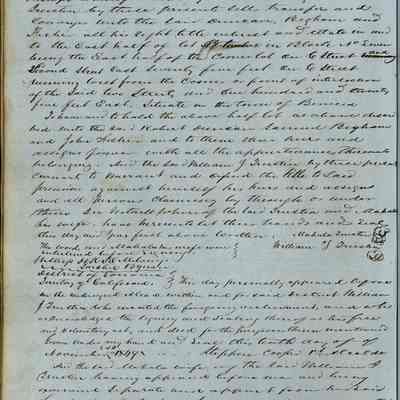 these presents sell transfer and
Convey unto the said Duncan, Bigham and
Fisher all his right title interest and estate in and
to the East half of lot in Block No
being the East half of the Corner lot on E Street and
Second Street East Seventy five feet on E Street
running East from the Corner or point of intersection
of the Said two Streets and One hundred and twenty
five feet East. Situate in the town of Benicia
To have and to hold the above half lot as above describ
bed unto the said Robert Duncan Samuel Bigham
and John Fisher and to them their heirs and
assigns forever with all the appurtenances thereunto
belonging. And the said William J Trustin by these presents
Covenant to Warrant and defend the title to Said
premises against himself his heirs and assigns
and all persons Claiming by through or under
them. In Witness Whereof the said Trustin and Mahala
his wife have hereunto set their hands and Seals
this day and year first above written. Mahala Trustin
The word and Mahala his wife were William J Trustin
interlined before signing
District of Sonoma
Territory of California. This day personally appeared before
me the undersigned in and for said District William
J Trustin who executed the foregoing instrument, and who
acknowledged the signing and Sealing thereof as his free
and voluntary act, and deed for the purposes therein mentioned
Given under my hand and Seal this tenth day of
November 1849 Stephen Cooper
And the said Mahala wife of the said William J
Trustin having appeared before me and being
examined Separate and apart from her said